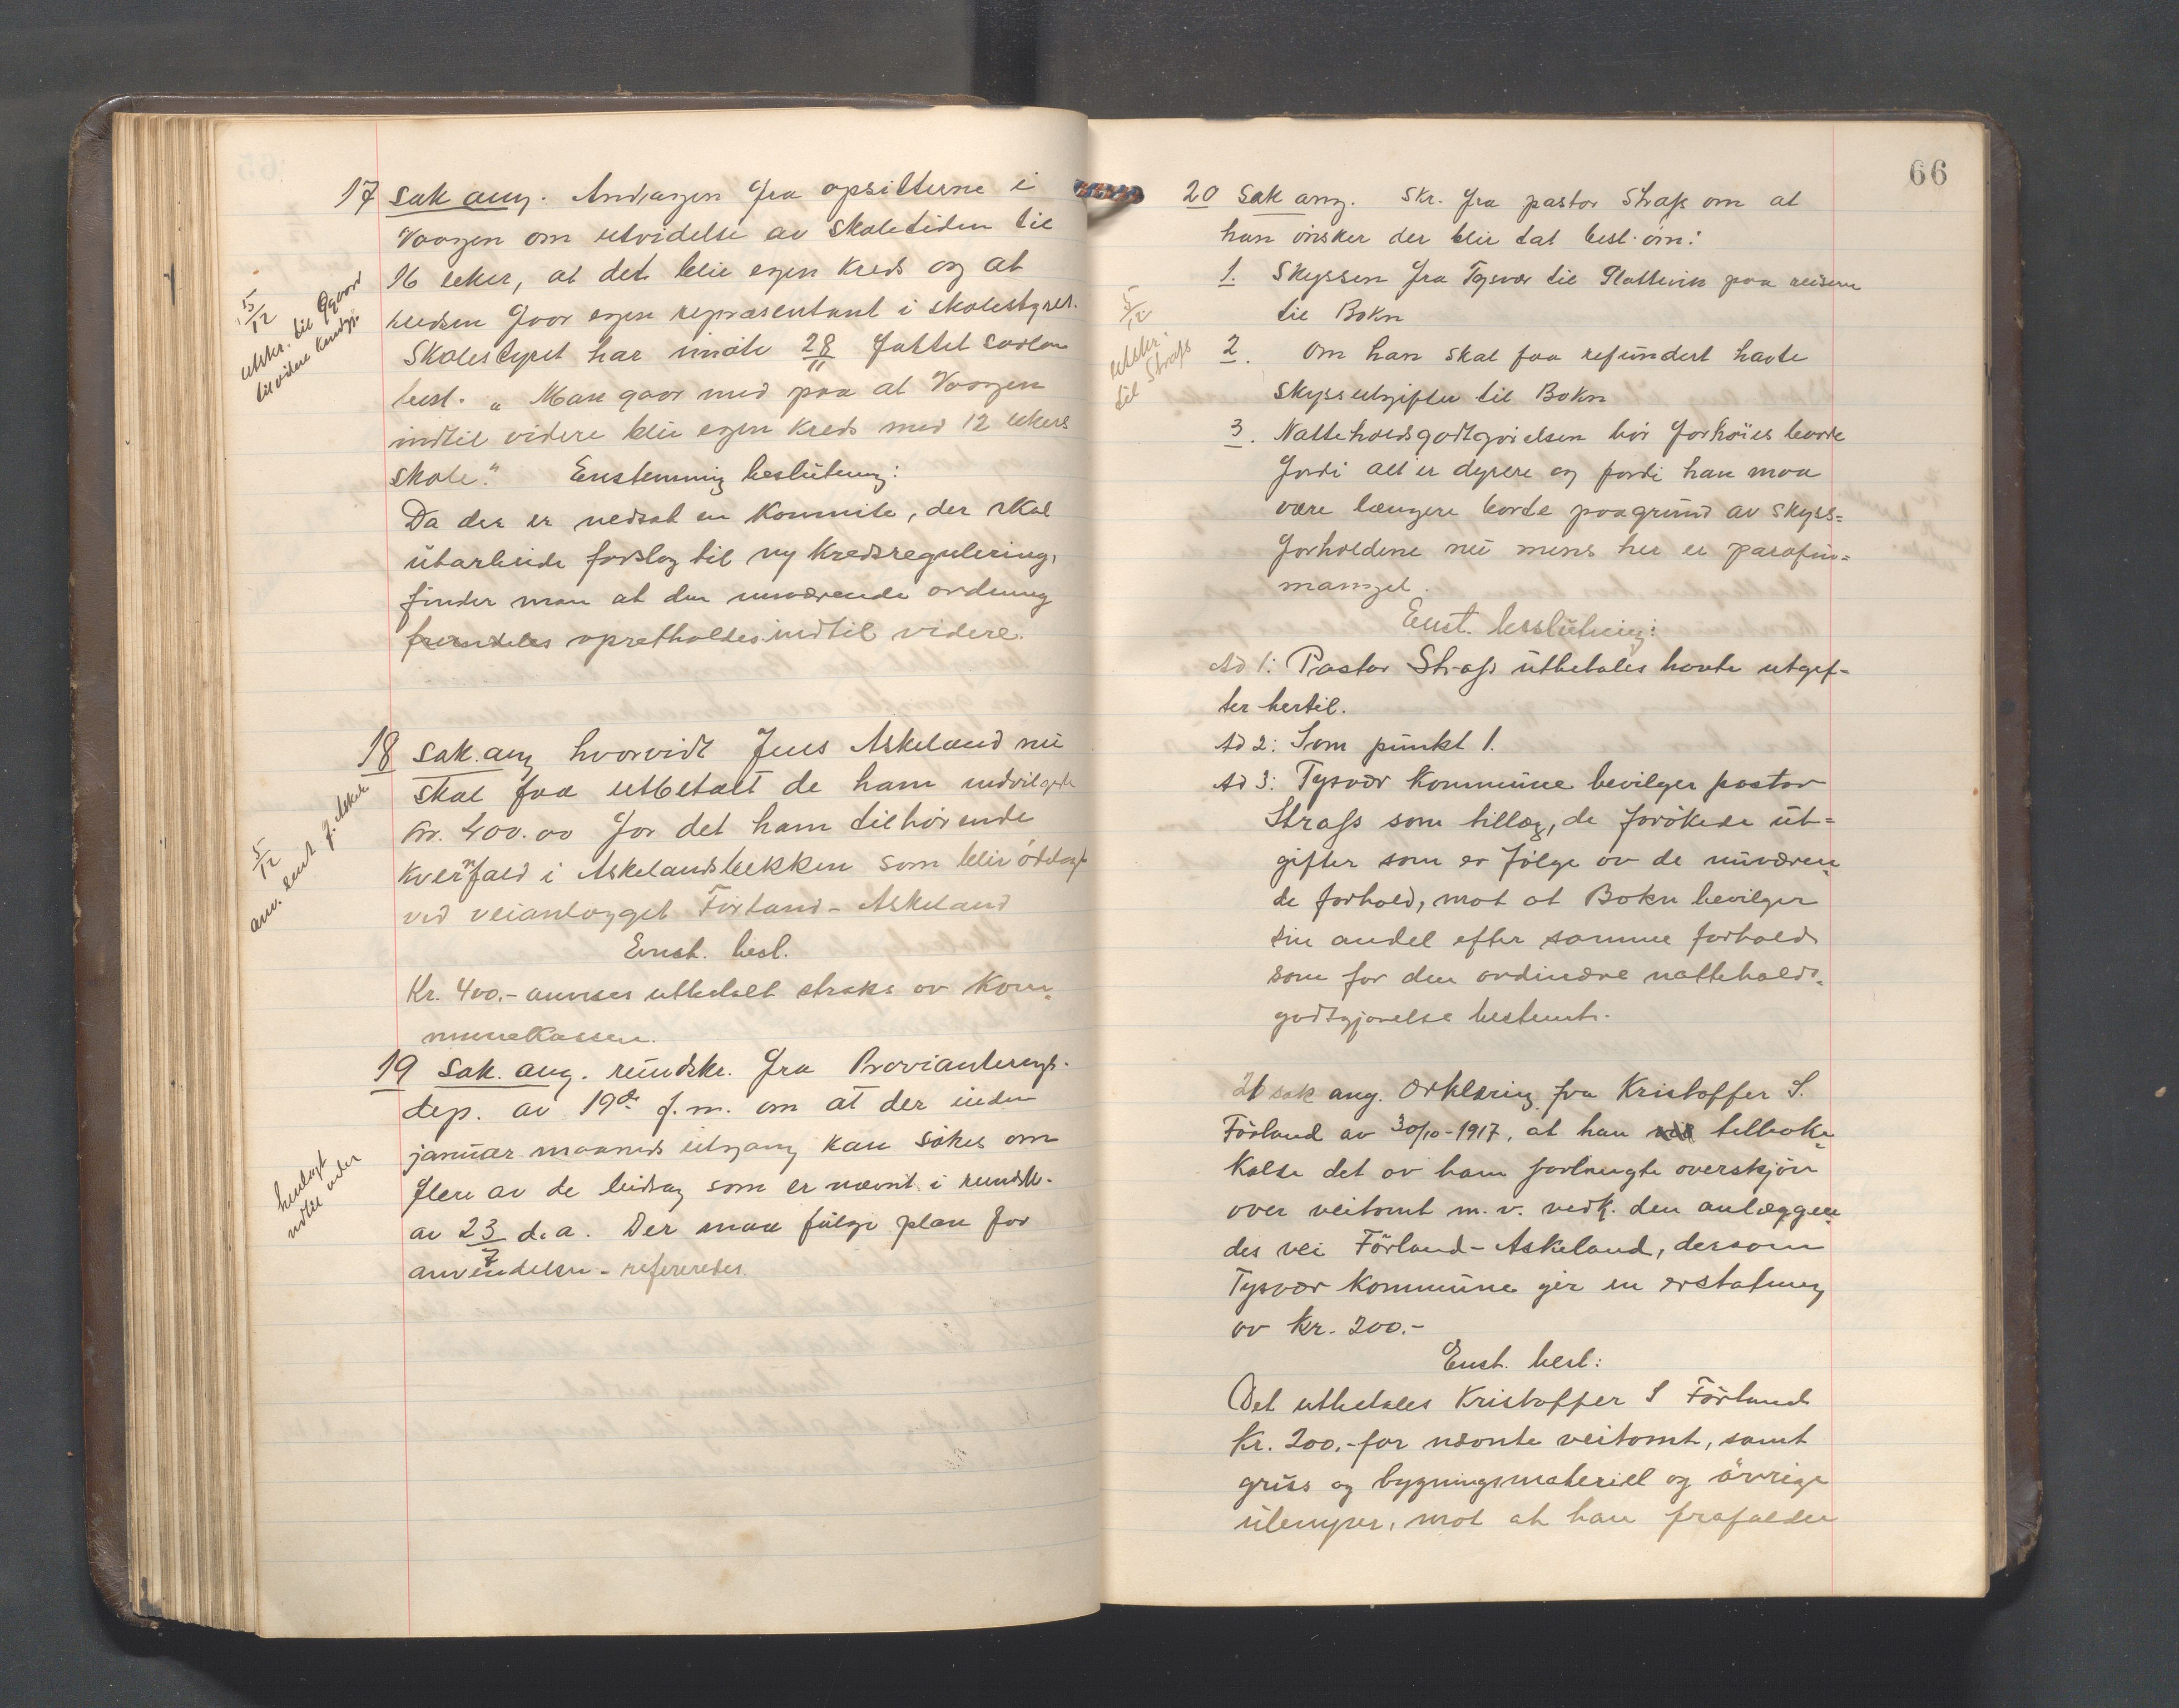 17 Sak ang. Andragen fra opsitterne i
Vaagen om utvidelse av skoletiden til
16 uker, at det blir egen kreds og at
kredsen faar egen repræsentant i skolestyret.
Skolestyret har i møte 28/11 fattet saadan
besl. „Man gaar med paa at Vaagen
indtil videre blir egen kreds med 12 ukers
skole." Enstemmig beslutning:
Da der er nedsat en Kommite, der skal
utarbeide forslag til ny kredsregulering,
finder man at den nuværende ordning
fremdeles opretholdes indtil videre.
5/12
utskr. til
til videre
18 Sak. ang hvorvidt Jens Askeland nu
skal faa utbetalt de ham indvilgede
Kr. 400.00 for det ham tilhørende
Kvernfald i Askelandsbekken som blir ødelagt
ved veianlægget Førland - Askeland
Enst. besl.
Kr. 400.- anvises utbetalt straks av Kom-
munekassen.
5/12
anv. sent J. Askel.
19 Sak. ang. rundskr. fra Provianterings-
dep. av 19de f.m. om at der inden
januar maaneds utgang kan søkes om
flere av de bidrag som er nævnt i rundsk.
av 23/7 d.a. Der maa følge plan for
anvendelsen - refereredes.
henlagt
indtil videre
66
20 Sak ang. Skr. fra pastor Strass om at
han ønsker der blir tat besl. om:
1. Skyssen fra Tysvær til Slattevik paa reisene
til Bokn
2. Om han skal faa refundert havte
skyssutgifter til Bokn
3. Natteholdsgodtgjørelsen bør forhøies baade
fordi alt er dyrere og fordi han maa
være længere borte paagrund av skyss-
forholdene nu mens her er parafin-
mangel.
Enst. beslutning:
Ad 1: Pastor Strass utbetales havte utgif-
ter hertil.
Ad 2: Som punkt 1.
Ad 3: Tysvær Kommune bevilger pastor
Strass som tillæg, de forøkede ut-
gifter som er følge av de nuværen-
de forhold, mot at Bokn bevilger
sin andel efter samme forhold
som for den ordinære nattehold-
godtgjørelse bestemt.
5/12
utskr.
til Strass
21 sak ang. Erklæring fra Kristoffer S.
Førland av 30/10-1917, at han tilbake-
kalse det av ham forlangte overskjøn
over veitomt m.v. vedk. den anlæggen-
des vei Førland - Askeland, dersom
Tysvær Kommune gir en erstatning
av Kr. 200.-
Enst. besl:
Det utbetales Kristoffer S Førland
Kr. 200.- for nævnte veitomt, samt
grus og bygningsmateriell og øvrige
ulemper, mot at han frafalder